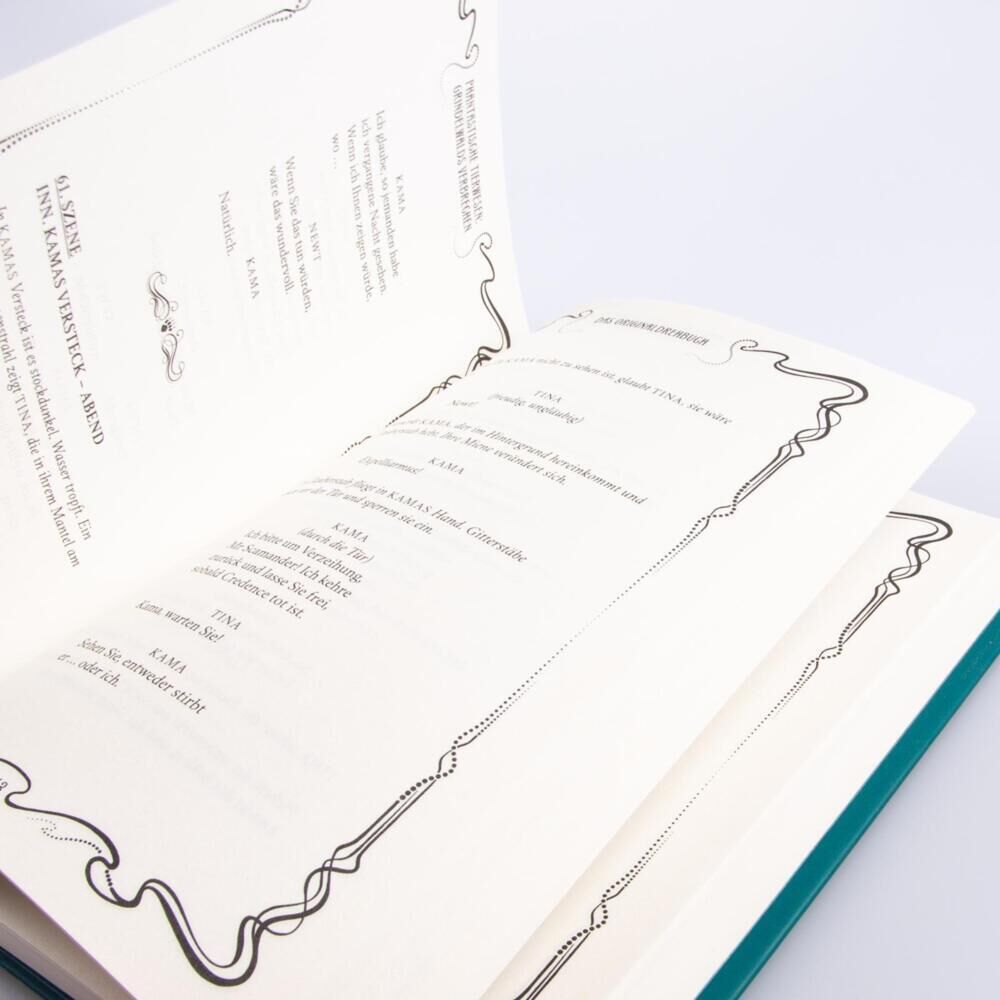 PHANTASTISCHE TIERWESEN:
GRINDELWALDS VERBRECHEN
KAMA
Ich glaube, so jemanden habe
ich vergangene Nacht gesehen.
Wenn ich Ihnen zeigen würde,
wo ...
NEWT
Wenn Sie das tun würden,
wäre das wundervoll.
KAMA
Natürlich.
61. SZENE
INN. KAMAS VERSTECK – ABEND
In KAMAS Versteck ist es stockdunkel. Wasser tropft. Ein
zeigt TINA, die in ihrem Mantel am
DAS ORIGINALDREHBUCH
KAMA nicht zu sehen ist, glaubt TINA, sie wäre
TINA
(freudig, ungläubig)
Newt!
KAMA, der im Hintergrund hereinkommt und
hebt. Ihre Miene verändert sich.
KAMA
Expelliarmus!
fliegt in KAMAS Hand. Gitterstäbe
vor der Tür und sperren sie ein.
KAMA
(durch die Tür)
Ich bitte um Verzeihung,
Mr Scamander! Ich kehre
zurück und lasse Sie frei,
sobald Credence tot ist.
TINA
Kama, warten Sie!
KAMA
Sehen Sie, entweder stirbt
er ... oder ich.